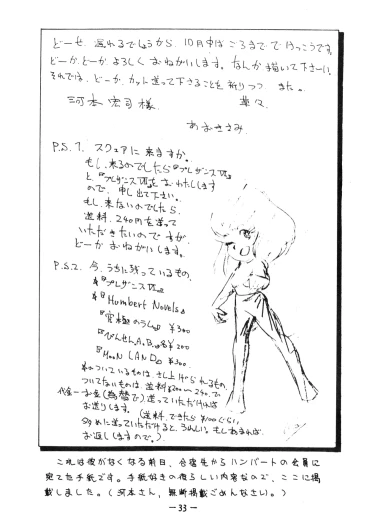 どーせ、遅れるでしょうから、10月中ばごろまででけっこうです。
どーか、どーか、よろしくおねがいします。なんか描いて下さーい。
それでは、どーか、カット送って下さることを祈りつつ また。
河本宏司様 草々
あおききみ
P.S.1. スクェアに来ますか。
もし、来るのでしたら『プレザンスⅥ』
と、『プレザンスⅦ』を おわたしします
ので、申し出て下さい。
もし、来ないのでしたら、
送料、240円を送って
いただきたいのですが、
どーか おねがいします。
P.S.2. 今、うちに残っているもの、
『プレザンス
『Humbert Novels』
『究極のラム』 ¥300
『びんせんA.B.』各¥200
『MooN LAND』 ¥300
ついているものは、さし上げられるもの、
ついてないものは、送料¥200〜240.で
代金一お金(為替で)送っていただければ
お送りします。(送料、できたら¥100ぐらい
多めに送っていただけると、うれしい。もしあまれば、
お返ししますので。)
これは彼がなくなる前日、合宿先からハンバートの会員に
宛てた手紙です。手紙好きの彼らしい内容なので、ここに掲
載しました。(河本さん、無断掲載ごめんなさい。)
－33－